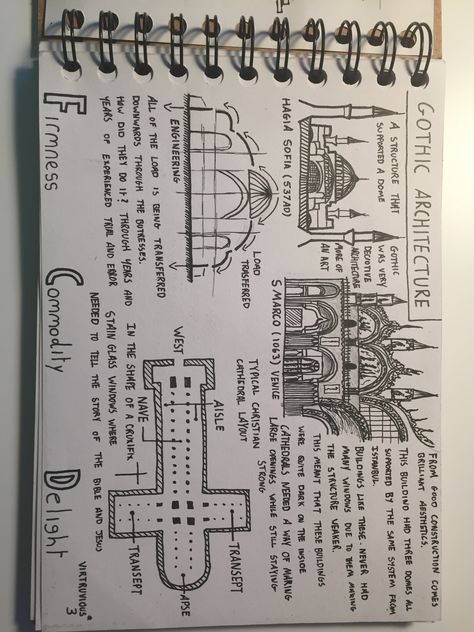 GOTHIC ARCHITECTURE
A STRUCTURE THAT
SUPPORTED A DOME
HAGIA SOFIA (537AD)
GOTHIC
WAS VERY
DECOTIVE
ARCHITECTURE
MORE OF
AN ART
S MARCO (1063) VENICE
FROM GOOD CONSTRUCTION COMES
BRILLIANT AESTHETICS.
THIS BUILDING HAD THREE DOMES ALL
SUPPORTED BY THE SAME SYSTEM FROM
ISTANBUL
BUILDINGS LIKE THESE NEVER HAD
MANY WINDOWS DUE TO THEM MAKING
THE STRUCTURE WEAKER.
THIS MEANT THAT THESE BUILDINGS
WERE QUITE DARK ON THE INSIDE
CATHEDRALS NEEDED A WAY OF MAKING
LARGE OPENINGS WHILE STILL STAYING
STRONG
LOAD
TRASFERRED
ENGINEERING
ALL OF THE LOAD IS BEING TRANSFERRED
DOWNWARDS THROUGH THE BUTRESSES.
HOW DID THEY DO IT? THROUGH YEARS AND
YEARS OF EXPERIENCED TRIAL AND ERROR
TYPICAL CHRISTIAN
CATHEDRAL LAYOUT
WEST
AISLE
NAVE
TRANSEPT
APSE
TRANSEPT
IN THE SHAPE OF A CRUCIFIX
STAIN GLASS WINDOWS WHERE
NEEDED TO TELL THE STORY OF THE BIBLE AND JESU
Firmness Commodity Delight
VIRTRUVIOUS
3